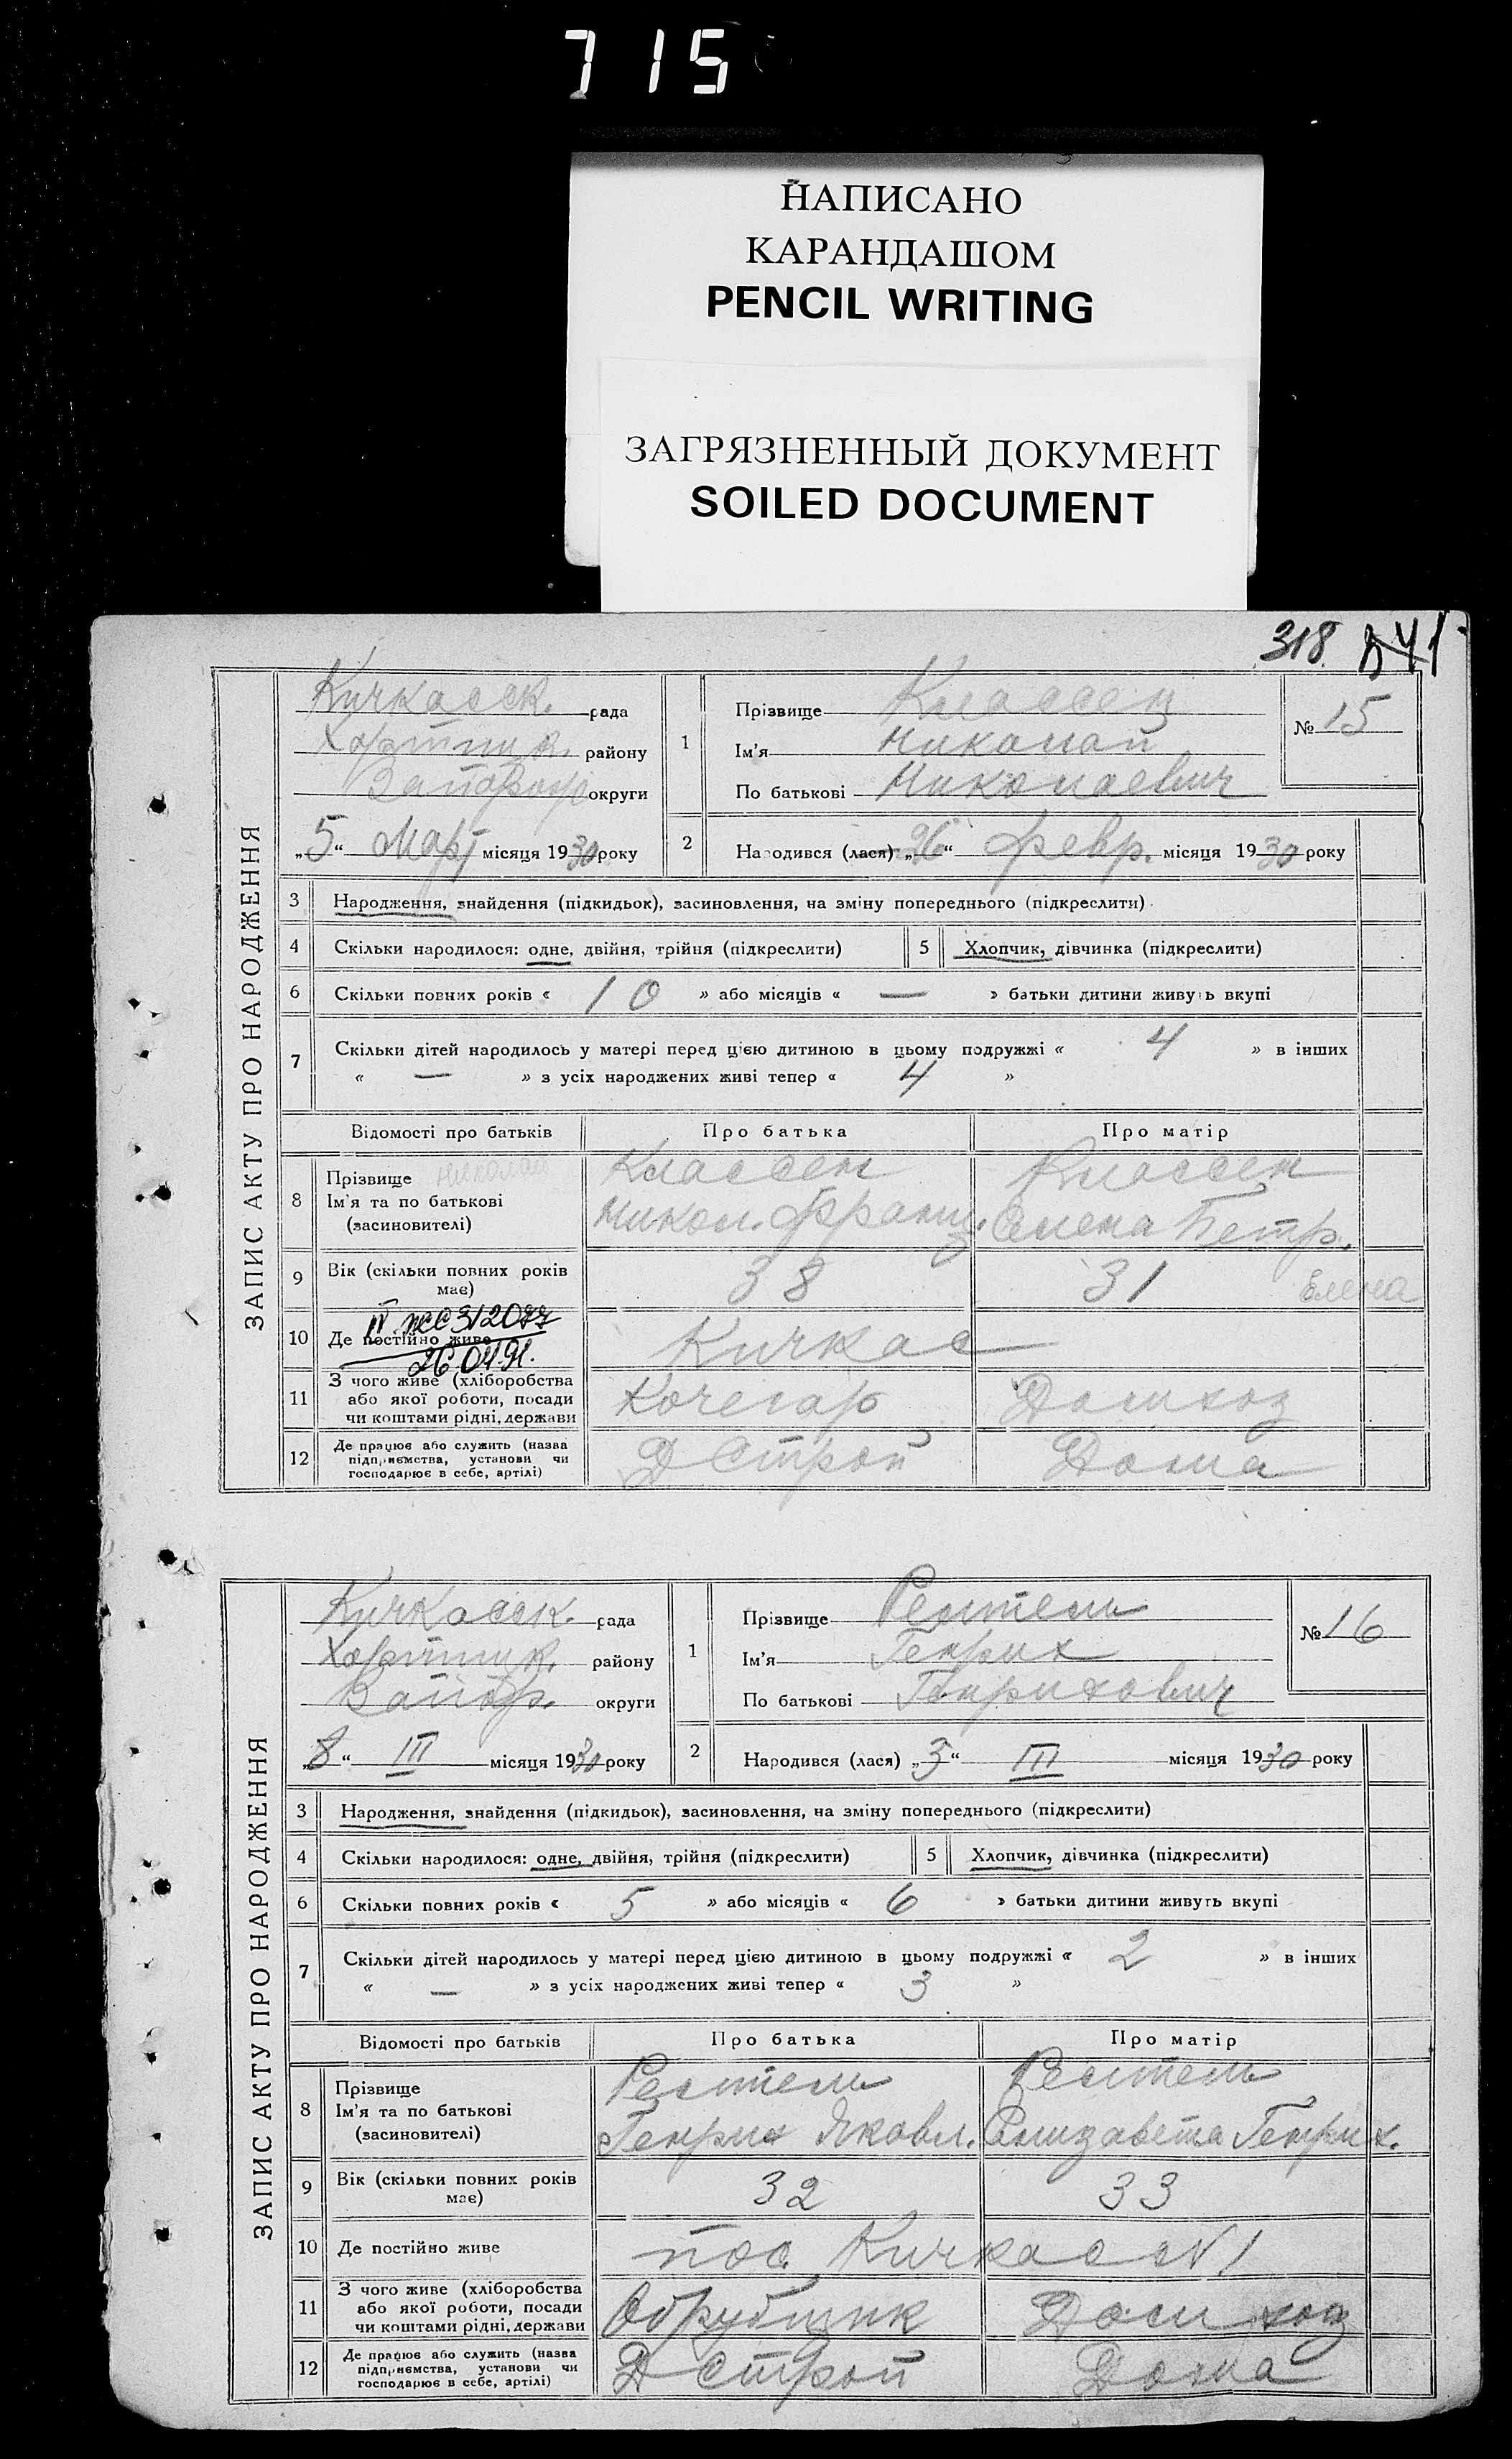 715
НАПИСАНО
КАРАНДАШОМ
PENCIL WRITING
ЗАГРЯЗНЕННЫЙ ДОКУМЕНТ
SOILED DOCUMENT
318
ЗАПИС АКТУ ПРО НАРОДЖЕННЯ
Кичкасск. рада
Хортицк. району
Запорож округи
„5“ Март місяця 1930 року
1 Прізвище Классен
Ім'я Николай
По батькові Николаевич
№ 15
2 Народився (лася) „26“ февр. місяця 1930 року
3 Народження, знайдення (підкидьок), засиновлення, на зміну попереднього (підкреслити)
4 Скільки народилося: одне, двійня, трійня (підкреслити) 5 Хлопчик, дівчинка (підкреслити)
6 Скільки повних років « 10 » або місяців « — » батьки дитини живуть вкупі
7 Скільки дітей народилось у матері перед цією дитиною в цьому подружжі « 4 » в інших
« — » з усіх народжених живі тепер « 4 »
Відомості про батьків Про батька Про матір
8 Прізвище николай Классен Классен
Ім'я та по батькові Никол. Франц. Елена Петр.
(засиновителі)
9 Вік (скільки повних років має) 38 31 Елена
10 Де постійно живе Кичкас
26.04.91.
11 З чого живе (хліборобства або якої роботи, посади чи коштами рідні, держави Кочегар Домхоз
12 Де працює або служить (назва підприємства, установи чи господарює в себе, артілі) Д Строй Дома
ЗАПИС АКТУ ПРО НАРОДЖЕННЯ
Кичкасск. рада
Хортицк. району
Запор. округи
„8“ III місяця 1930 року
1 Прізвище Ремпель
Ім'я Генрих
По батькові Генрихович
№ 16
2 Народився (лася) „3“ III місяця 1930 року
3 Народження, знайдення (підкидьок), засиновлення, на зміну попереднього (підкреслити)
4 Скільки народилося: одне, двійня, трійня (підкреслити) 5 Хлопчик, дівчинка (підкреслити)
6 Скільки повних років « 5 » або місяців « 6 » батьки дитини живуть вкупі
7 Скільки дітей народилось у матері перед цією дитиною в цьому подружжі « 2 » в інших
« — » з усіх народжених живі тепер « 3 »
Відомості про батьків Про батька Про матір
8 Прізвище Ремпель Ремпель
Ім'я та по батькові Генрих Яковл. Елизавета Генрих.
(засиновителі)
9 Вік (скільки повних років має) 32 33
10 Де постійно живе пос. Кичкас №1
11 З чого живе (хліборобства або якої роботи, посади чи коштами рідні, держави Обрубщик Дом хоз
12 Де працює або служить (назва підприємства, установи чи господарює в себе, артілі) Д Строй Дома